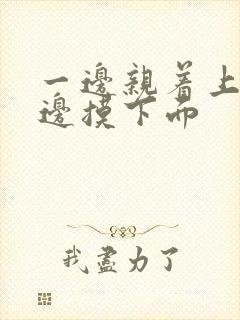 一邊親着上
邊摸下而
我盡力了